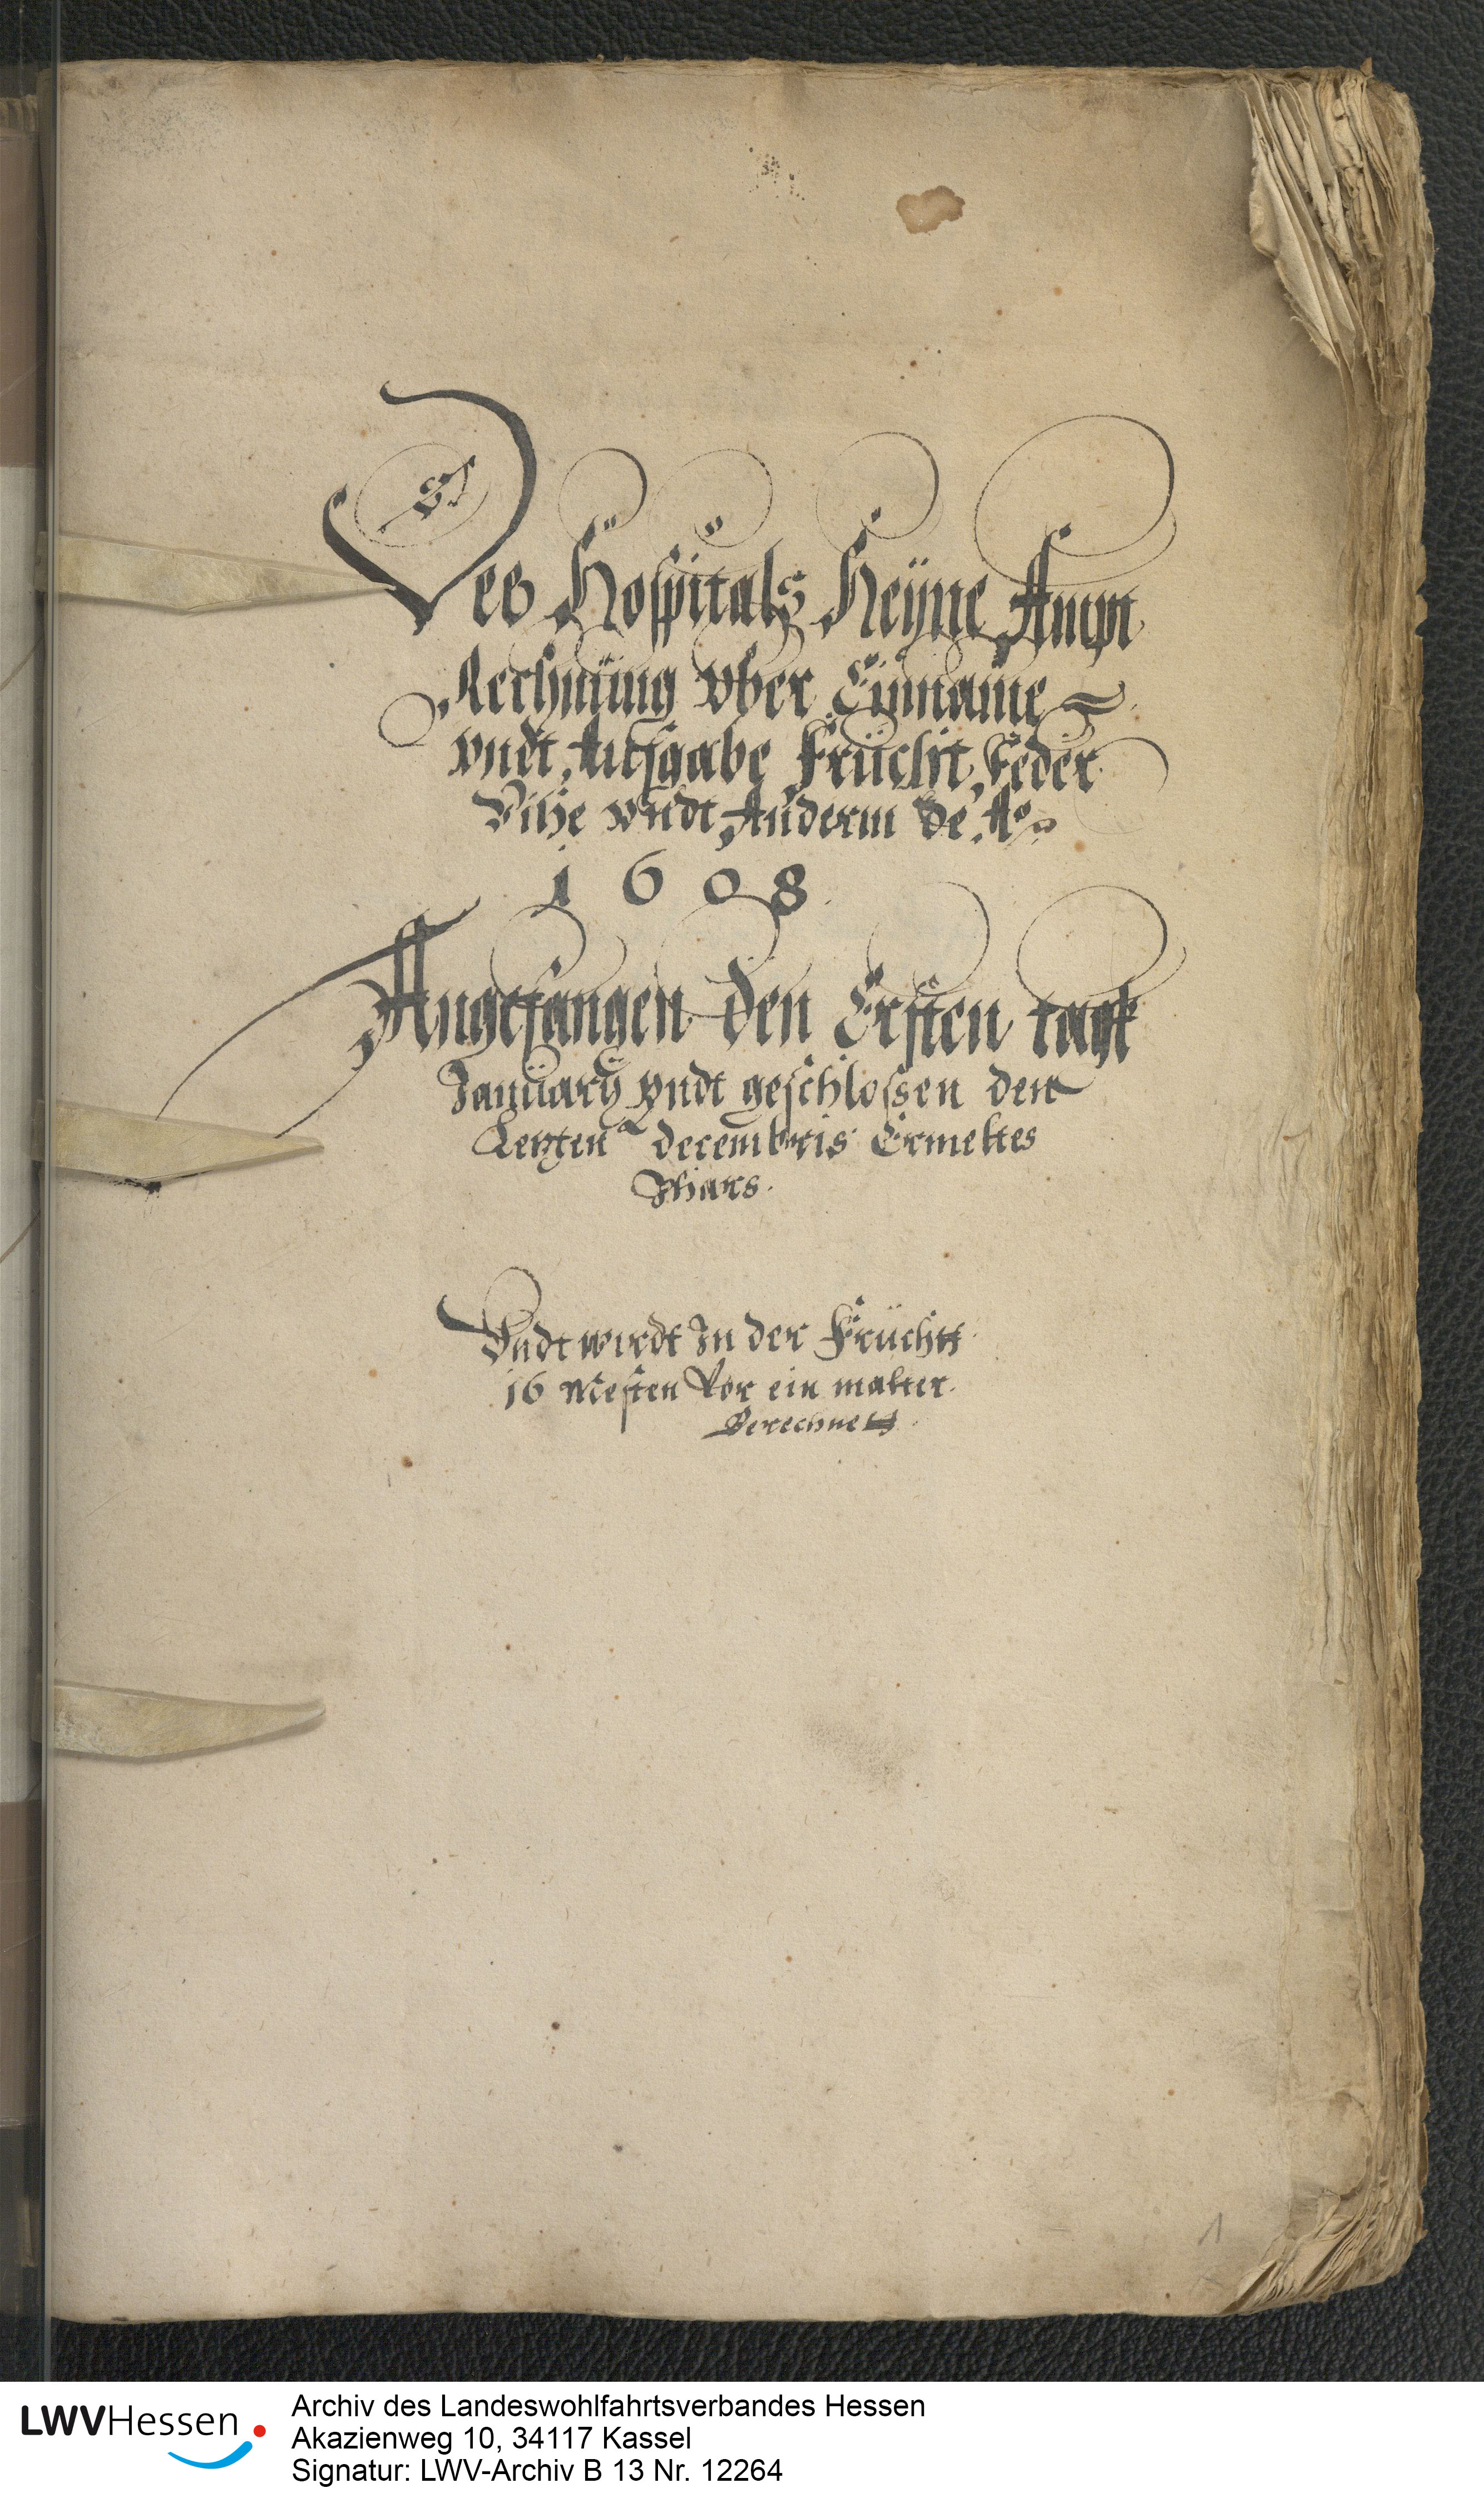 Des Hospitals Heÿne Ampt
Rechnüng vber Einname
vndt Ausgabe Frücht, Feder
Vihe vndt Anderm de Aō
1608
Angefangen den Ersten tagk
Januarÿ vndt geschlossen den
Letzten decembris Ermeltes
Jhars.
Vndt wirdt In der Früchtt
16 Mesten Vor ein malter.
Berechnett.
1
LWVHessen
Archiv des Landeswohlfahrtsverbandes Hessen
Akazienweg 10, 34117 Kassel
Signatur: LWV-Archiv B 13 Nr. 12264